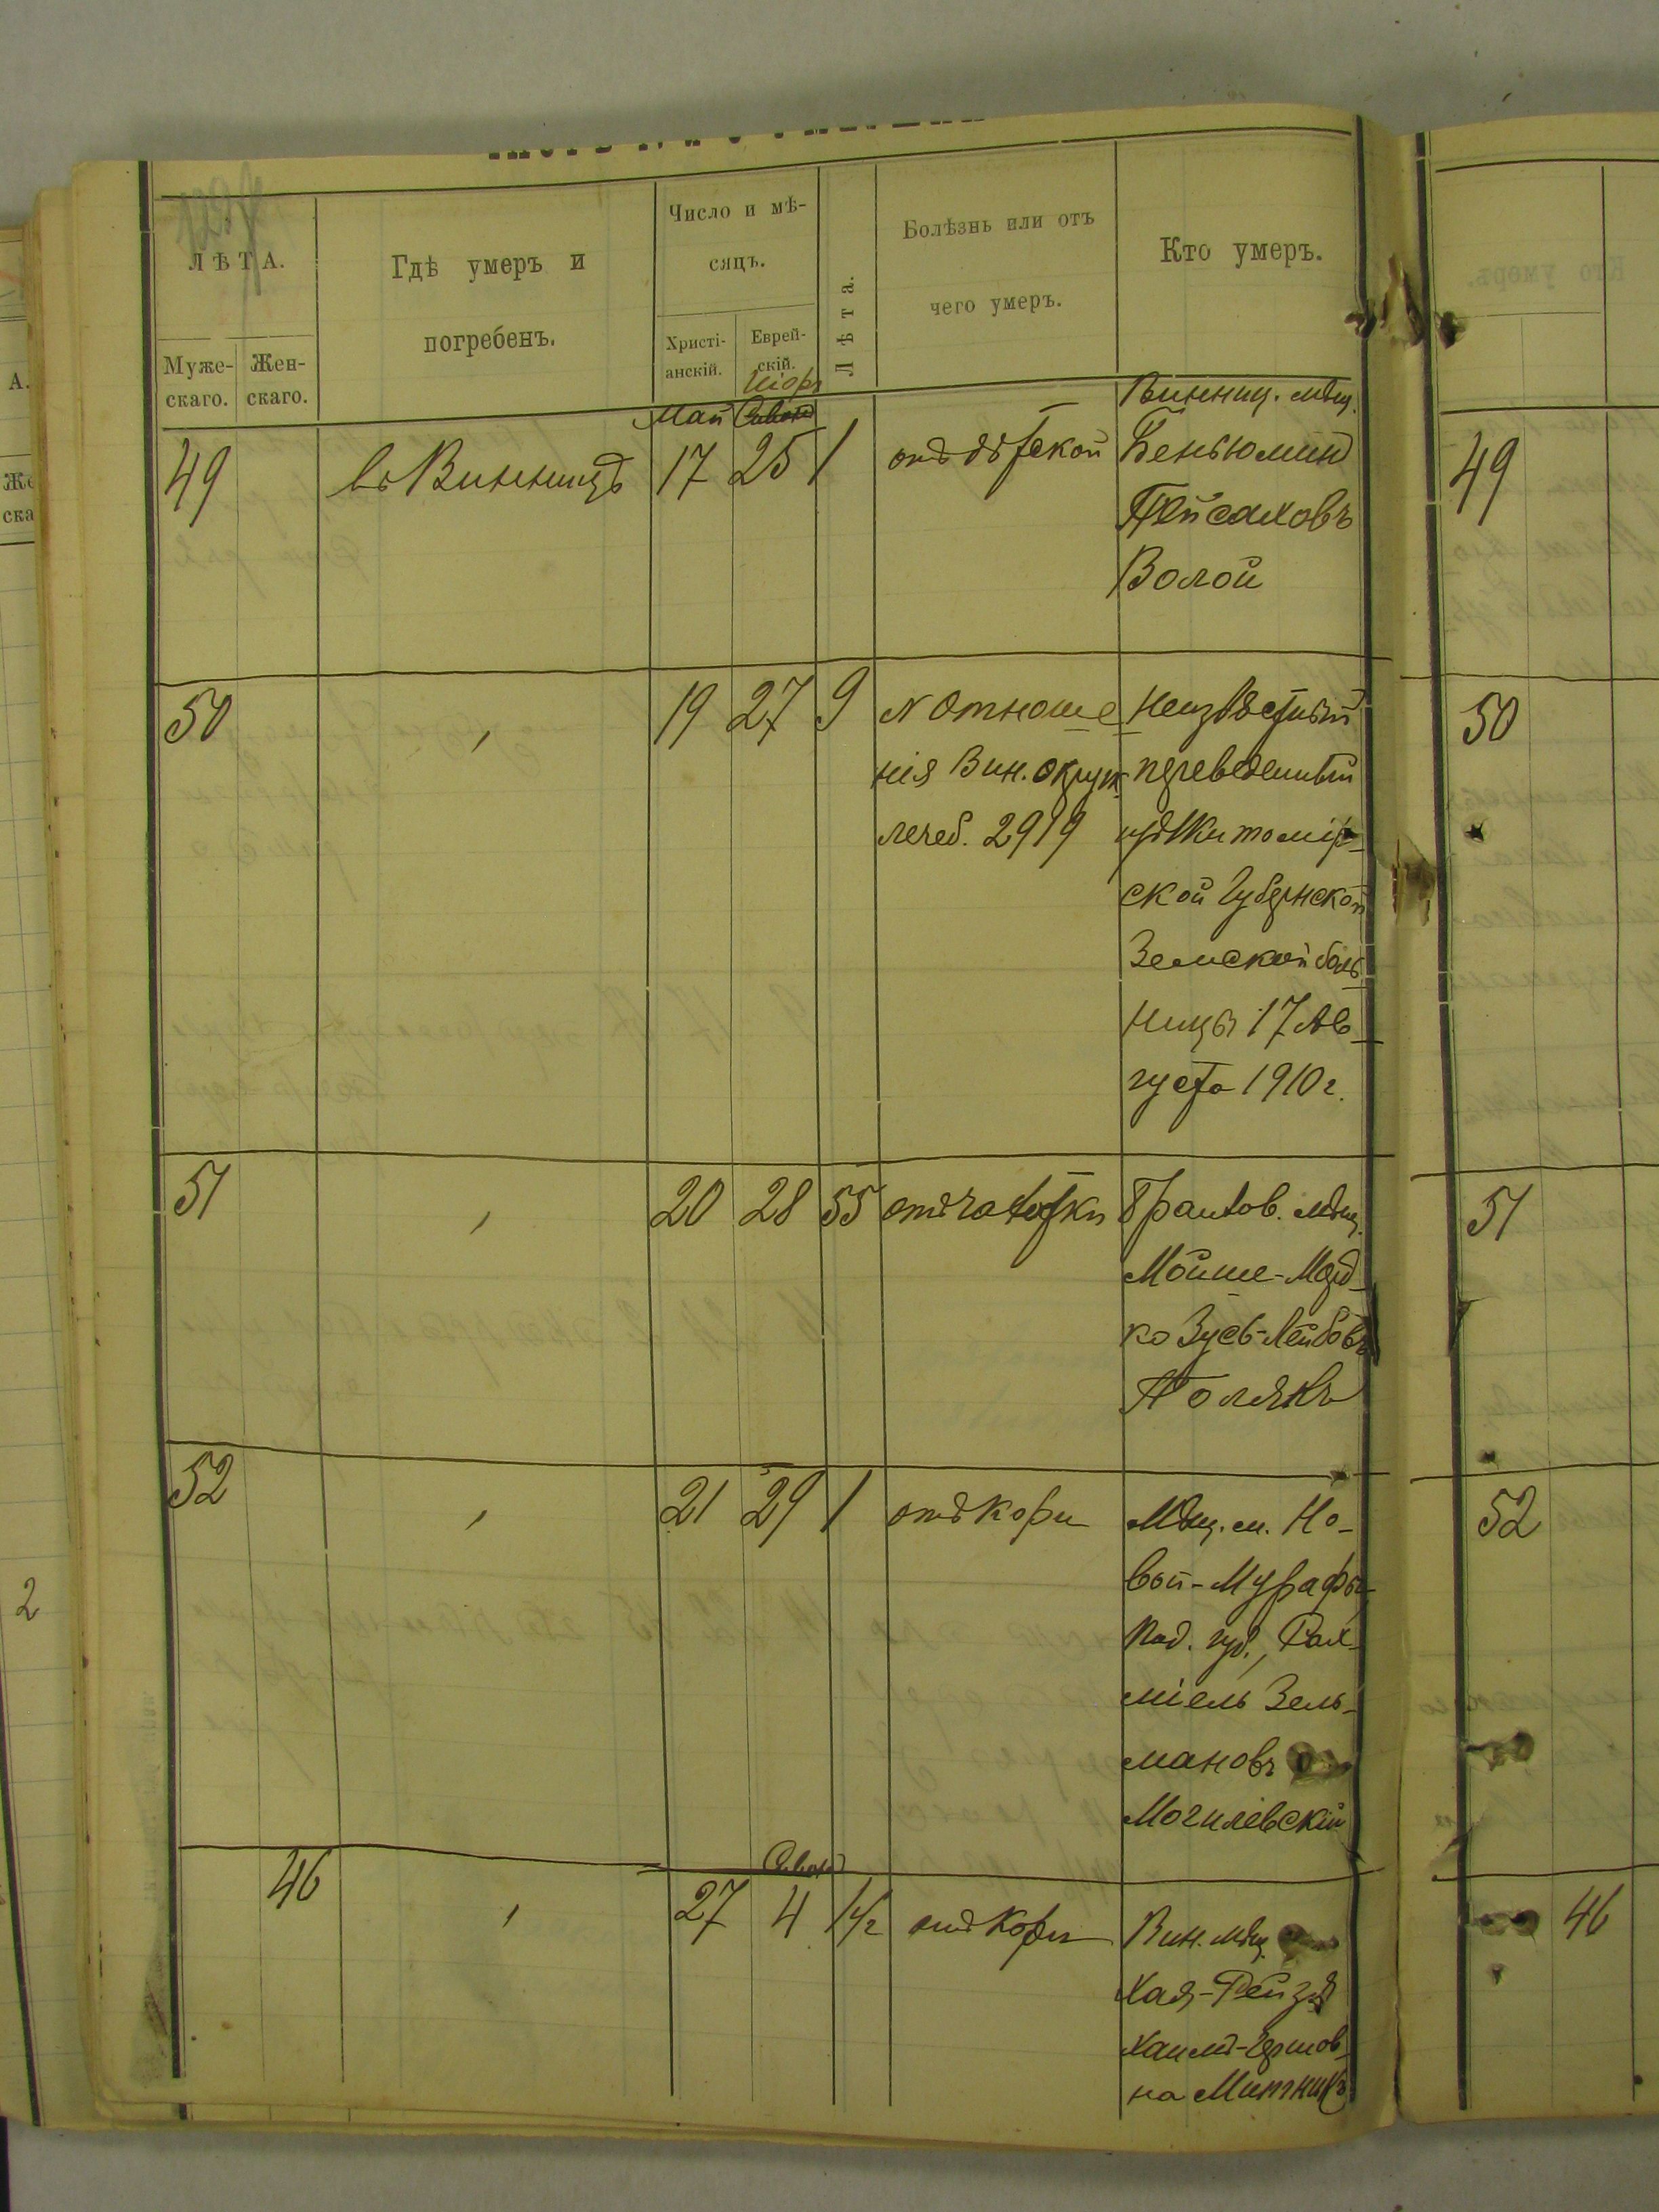 ЛѢТА.
Муже-
скаго.
Жен-
скаго.
Гдѣ умеръ и
погребенъ.
Число и мѣ-
сяцъ.
Христі-
анскій.
Еврей-
скій.
Лѣта.
Болѣзнь или отъ
чего умеръ.
Кто умеръ.
Май
Іюръ
49
въ Винницѣ
17
25
1
отъ дѣтской
Винниц. мѣщ.
Беньюминъ
Пейсаховъ
Волой
50
"
19
27
9
№ Отноше-
нія Вин. окруж.
лечеб. 2919
Неизвѣстный
переведенный
изъ Житомір-
ской Губернской
Земской боль-
ницы 17 Ав-
густа 1910 г.
51
"
20
28
55
отъ чахотки
мѣщ.
Мойше-Морд-
ко Зусь-Лейбовъ
Полякъ
52
"
21
29
1
отъ кори
Мѣщ. м. Но-
вой-Мурафы
Под. губ., Рах-
міель Зель-
мановъ
Могилевскій
46
"
27
Сивонъ
4
1 1/2
отъ кори
Вин. мѣщ.
Хая-Рейзя
Хаимъ-Гершов-
на Митникъ
49
50
51
52
46
2